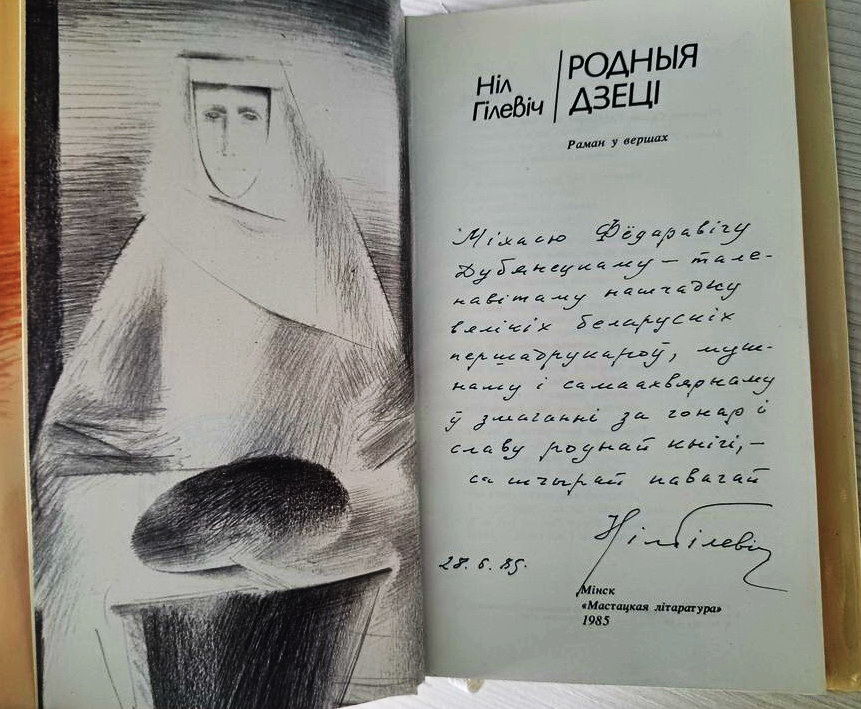 Ніл
Гілевіч
РОДНЫЯ
ДЗЕЦІ
Раман у вершах
Міхасю Фёдаравічу
Дубянецкаму – тале-
навітаму нашчадку
вялікіх беларускіх
першадрукароў, муж-
наму і самаахвярнаму
ў змаганні за гонар і
славу роднай кнігі, –
са шчырай павагай
Ніл Гілевіч
28.6.85.
Мінск
«Мастацкая літаратура»
1985